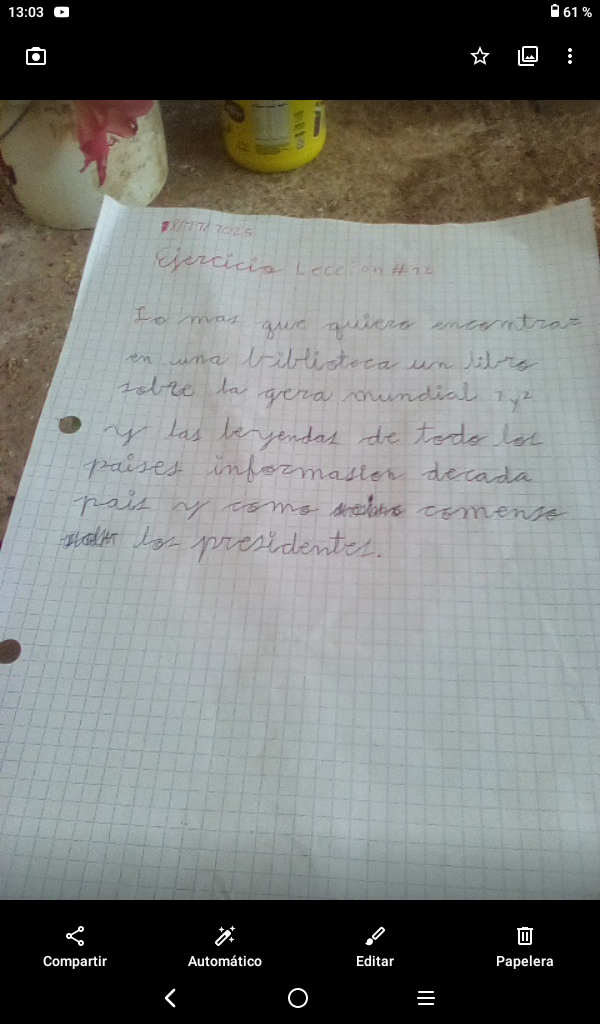 13:03
61 %
18/11/2025
Ejercicio Leccion #12
Lo mas que quiero encontrar
en una biblioteca un libro
sobre la gera mundial 1 y 2
y las leyendas de todo los
paises informasion decada
pais y como comenso
los presidentes.
Compartir
Automático
Editar
Papelera